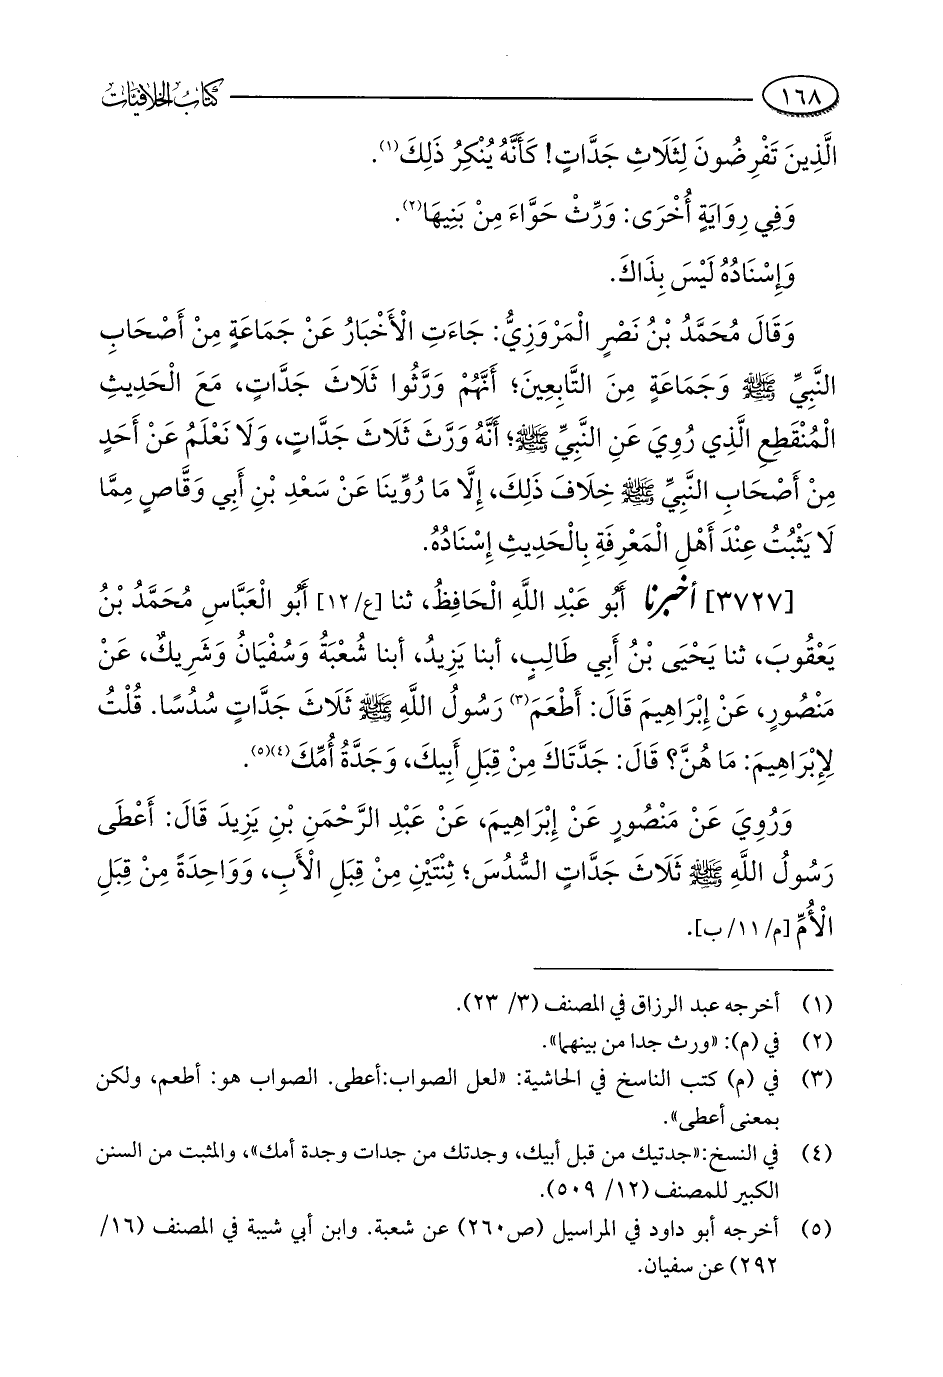 ١٦٨ كتاب الخلافيات
الَّذِينَ تَفْرِضُونَ لِثَلَاثِ جَدَّاتٍ! كَأَنَّهُ يُنْكِرُ ذَلِكَ(١).
وَفِي رِوَايَةٍ أُخْرَى: وَرِّثْ حَوَّاءَ مِنْ بَنِيهَا(٢).
وَإِسْنَادُهُ لَيْسَ بِذَاكَ.
وَقَالَ مُحَمَّدُ بْنُ نَصْرٍ الْمَرْوَزِيُّ: جَاءَتِ الْأَخْبَارُ عَنْ جَمَاعَةٍ مِنْ أَصْحَابِ
النَّبِيِّ ﷺ وَجَمَاعَةٍ مِنَ التَّابِعِينَ؛ أَنَّهُمْ وَرَّثُوا ثَلَاثَ جَدَّاتٍ، مَعَ الْحَدِيثِ
الْمُنْقَطِعِ الَّذِي رُوِيَ عَنِ النَّبِيِّ ﷺ؛ أَنَّهُ وَرَّثَ ثَلَاثَ جَدَّاتٍ، وَلَا نَعْلَمُ عَنْ أَحَدٍ
مِنْ أَصْحَابِ النَّبِيِّ ﷺ خِلَافَ ذَلِكَ، إِلَّا مَا رُوِّينَا عَنْ سَعْدِ بْنِ أَبِي وَقَّاصٍ مِمَّا
لَا يَثْبُتُ عِنْدَ أَهْلِ الْمَعْرِفَةِ بِالْحَدِيثِ إِسْنَادُهُ.
[٣٧٢٧] أخبرنا أَبُو عَبْدِ اللَّهِ الْحَافِظُ، ثنا [ع/١٢] أَبُو الْعَبَّاسِ مُحَمَّدُ بْنُ
يَعْقُوبَ، ثنا يَحْيَى بْنُ أَبِي طَالِبٍ، أبنا يَزِيدُ، أبنا شُعْبَةُ وَسُفْيَانُ وَشَرِيكٌ، عَنْ
مَنْصُورٍ، عَنْ إِبْرَاهِيمَ قَالَ: أَطْعَمَ(٣) رَسُولُ اللَّهِ ﷺ ثَلَاثَ جَدَّاتٍ سُدُسًا. قُلْتُ
لِإِبْرَاهِيمَ: مَا هُنَّ؟ قَالَ: جَدَّتَاكَ مِنْ قِبَلِ أَبِيكَ، وَجَدَّةُ أُمِّكَ(٤)(٥).
وَرُوِيَ عَنْ مَنْصُورٍ عَنْ إِبْرَاهِيمَ، عَنْ عَبْدِ الرَّحْمَنِ بْنِ يَزِيدَ قَالَ: أَعْطَى
رَسُولُ اللَّهِ ﷺ ثَلَاثَ جَدَّاتٍ السُّدُسَ؛ ثِنْتَيْنِ مِنْ قِبَلِ الْأَبِ، وَوَاحِدَةً مِنْ قِبَلِ
الْأُمِّ [م/١١/ب].
(١) أخرجه عبد الرزاق في المصنف (٣/ ٢٣).
(٢) في (م): «ورث جدا من بينهما».
(٣) في (م) كتب الناسخ في الحاشية: «لعل الصواب:أعطى. الصواب هو: أطعم، ولكن
بمعنى أعطى».
(٤) في النسخ:«جدتيك من قبل أبيك، وجدتك من جدات وجدة أمك»، والمثبت من السنن
الكبير للمصنف (١٢/ ٥٠٩).
(٥) أخرجه أبو داود في المراسيل (ص٢٦٠) عن شعبة. وابن أبي شيبة في المصنف (١٦/
٢٩٢) عن سفيان.